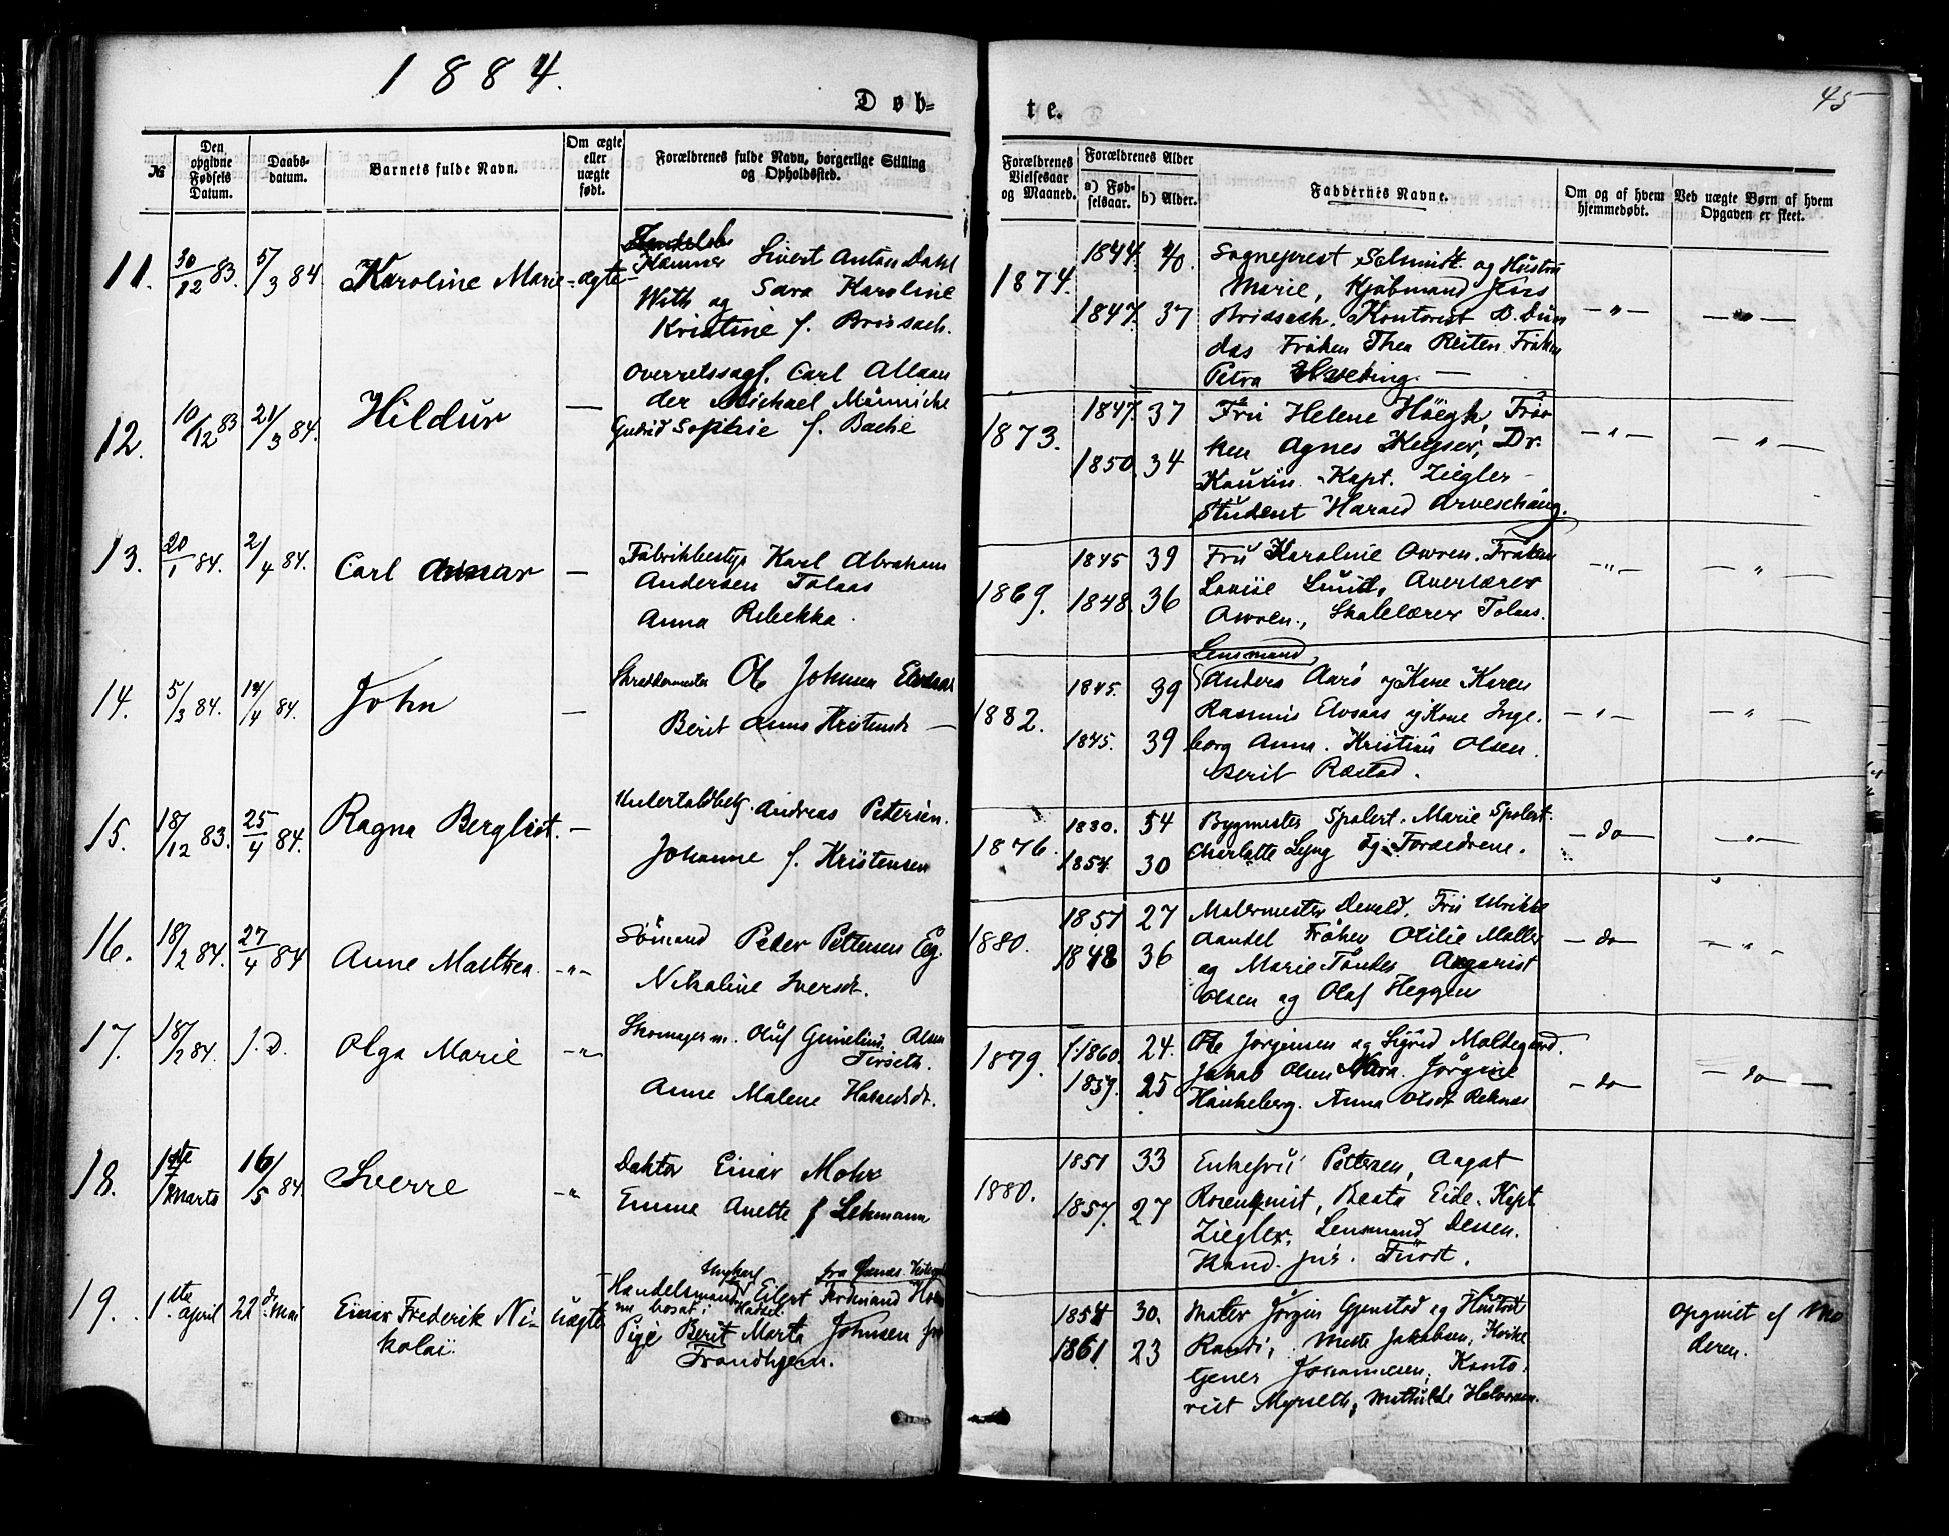 1884.
45
Døb-
te.
№
Den opgivne Fødsels Datum.
Daabs-datum.
Barnets fulde Navn.
Om ægte eller uægte født.
Forældrenes fulde Navn, borgerlige Stilling og Opholdssted.
Forældrenes Vielsesaar og Maaned.
Forældrenes Alder
a) Fød-selsaar.
b) Alder.
Faddernes Navne.
Om og af hvem hjemmedøbt.
Ved uægte Børn af hvem Opgaven er skeet.
11. 30/12 83. 5/3 84. Karoline Marie - ægte -
Kæmner Sivert Anton Dahl
With og Sara Karoline
Kristine f. Brissach.
1874. 1844. 40. 1847. 37
Sogneprest Schmidt og Hustru
Marie, Kjøbmand Jens
Brissach. Kontorist D. Dun
das Frøken Thea Reiten Frøken
Petra
— " — — " —
12. 10/12 83 21/3 84. Hildur —
Overretssagf. Carl Alexan
der Michael Münnich
Gudrid Sophie f. Bache
1873. 1847. 37 1850. 34
Fru Helene Høegh, Frø
ken Agnes Keyser, Dr.
Kaurin - Kapt. Ziegler -
Student Harald Arveschoug.
— " — — " —
13. 20/1 84. 2/4 84. Carl —
Fabrikbestyr Karl Abraham
Andersen Tolaas
Anna Rebekka.
1869. 1845 39 1848. 36
Fru Karoline Owren. Frøken
Lovise Lund, Overlærer
Owren., Skolelærer Tolaas.
— " — — " —
14. 5/3 84. 14/4 84. John —
Skreddermester Ole Johnsen Elvsaas
Berit Anna Kristensdt —
1882. 1845. 39 1845. 39
Lensmand,
Anders Aarø og Kone Karen
Rasmus Elvsaas og Kone Inge.
borg Anna. Kristian Olsen
Berit Røstad.
— " — — " —
15. 18/12 83. 25/4 84. Ragna Bergliot. —
Undertoldbetj. Andreas Petersen.
Johanne f. Kristensen
1876. 1830. 54 1854. 30
Bygmester Spolert. Marie Spolert.
Charlotte Lyng og Forældrene.
— do — — " —
16. 18/2 84. 27/4 84 Anne Mathea. - " -
Sømand Peder Pettersen Eg.
Nikoline Iversdt.
1880. 1857 27 1848 36
Malermester Devold. Fru Ulrikke
Aandal Frøken Otilie Møller
og Marie Tøndes
Olsen og Olaf Heggen
— do — — " —
17. 18/2 84. s. D. Olga Marie - " -
Skomager m. Oluf Gunelius Olsen
Tirseth.
Anne Malene Haraldsdt.
1879. 1860. 24. 1859. 25
Ole Jørgensen og Sigrid Moldegaard.
Jakob Olsen Jørgine
Haukeberg. Anna Olsdt Reknes
— do — — do —
18. 1ste Marts 16/5 84. Sverre - "
Doktor Einar Mohr
Emma Anette f Lehmann
1880. 1851 33 1857. 27
Enkefru Pettersen, August
Rosenqvist, Beata Eide. Kapt
Ziegler. Lensmand Dessen.
Kand. jur. Furst.
19. 1ste April 22d Mai Einar Frederik Ni-
kolai. uægte
Ungkarl
Handelsmand Eilert Ferdinand
bosat i Hadsel
Pige Berit Marta Johnsen fra
Trondhjem.
1854 30. 1861. 23
Maler Jørgen Gjenstad og Hustru
Randi, Mette Jakobsen,
Johannesen, Konto.
rist Myrseth, Mathilde Halvorsen.
Opgivet af Mo
deren.